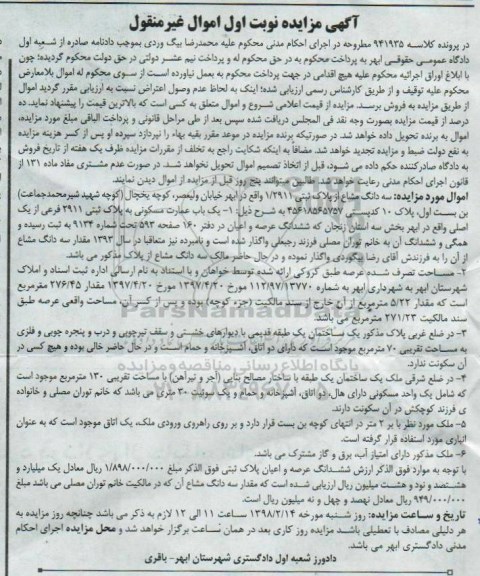 آگهی مزایده نوبت اول اموال غیرمنقول
در پرونده کلاسه ۹۴۱۹۳۵ مطروحه در اجرای احکام مدنی محکوم علیه محمدرضا بیگ وردی بموجب دادنامه صادره از شعبه اول
دادگاه عمومی حقوقی ابهر به پرداخت محکوم به در حق محکوم له و پرداخت نیم عشر دولتی در حق دولت محکوم گردیده؛ چون
با ابلاغ اوراق اجرائیه محکوم علیه هیچ اقدامی در جهت پرداخت محکوم به بعمل نیاورده است از سوی محکوم له اموال بلامعارض
محکوم علیه توقیف و از طریق کارشناس رسمی ارزیابی شده؛ اینک به لحاظ عدم وصول اعتراض نسبت به ارزیابی مقرر گردید اموال
از طریق مزایده به فروش برسد. مزایده از قیمت اعلامی شروع و اموال متعلق به کسی است که بالاترین قیمت را پیشنهاد نماید. ده
درصد از قیمت مزایده بصورت وجه نقد فی المجلس دریافت شده سپس بعد از طی مراحل قانونی و پرداخت الباقی مبلغ مورد مزایده،
اموال به برنده تحویل داده خواهد شد. در صورتیکه برنده مزایده در موعد مقرر بقیه بهاء را نپردازد سپرده او پس از کسر هزینه مزایده
به نفع دولت ضبط و مزایده تجدید خواهد شد. مضافاً به اینکه شکایت راجع به تخلف از مقررات مزایده ظرف یک هفته از تاریخ فروش
به دادگاه صادرکننده حکم داده می شود، قبل از اتخاذ تصمیم اموال تحویل نخواهد شد. در صورت عدم مشتری مفاد ماده ۱۳۱ از
قانون اجرای احکام مدنی رعایت خواهد شد. طالبین میتوانند پنج روز قبل از مزایده از اموال دیدن نمایند.
اموال مورد مزایده: سه دانگ مشاع از پلاک ثبتی ۱/۲۹۱۱ واقع در ابهر خیابان ولیعصر، کوچه یخچال (کوچه شهید شیرمحمدجماعت)
بن بست اول، پلاک ۱۰ کدپستی ۴۵۶۱۸۵۶۵۷۵۷ به شرح ذیل: ۱- یک باب عمارت مسکونی به پلاک ثبتی ۲۹۱۱ فرعی از یک
اصلی واقع در ابهر بخش سه استان زنجان که ششدانگ عرصه و اعیان در دفتر ۱۶۰ صفحه ۵۹۳ تحت شماره ۹۱۳۴ به ثبت رسیده و
همگی و ششدانگ آن به خانم توران مصلی فرزند رجبعلی واگذار شده است و نامبرده نیز متعاقبا در سال ۱۳۹۳ مقدار سه دانگ مشاع
از آن را به فرزندش آقای رضا بیگوردی واگذار نموده و درحال حاضر مالک سه دانگ مشاع از پلاک مذکور می باشد.
۲- مساحت تصرف شده عرصه طبق کروکی ارائه شده توسط خواهان و با استناد به نام ارسالی اداره ثبت اسناد و املاک
شهرستان ابهر به شهرداری ابهر به شماره ۱۱۲/۹۷/۱۳۷۷۰ مورخ ۱۳۹۷/۴/۲۰ مورخ ۱۳۹۷/۴/۲۰ مقدار ۲۷۶/۴۵ مترمربع
است که مقدار ۵/۲۲ مترمربع از آن خارج از سند مالکیت (جزء کوچه) بوده و پس از کسر آن، مساحت واقعی عرصه طبق
سند مالکیت ۲۷۱/۲۳ مترمربع می باشد.
۳- در ضلع غربی پلاک مذکور یک ساختمان یک طبقه قدیمی با دیوارهای خشتی و سقف تیرچوبی و درب و پنجره چوبی و فلزی
به مساحت تقریبی ۷۰ مترمربع موجود است که دارای دو اتاق، آشپزخانه و حمام است و در حال حاضر خالی بوده و هیچ کسی در
آن سکونت ندارد.
۴- در ضلع شرقی ملک یک ساختمان یک طبقه با ساختار مصالح بنایی (آجر و تیرآهن) با مساحت تقریبی ۱۳۰ مترمربع موجود است
که شامل یک واحد مسکونی دارای هال، دو اتاق، آشپزخانه و حمام و یک سوئیت ۳۰ متری می باشد که خانم توران مصلی و خانواده
ی فرزند کوچکش در آن سکونت دارند.
۵- ملک مورد نظر با بر ۲ متر در انتهای کوچه بن بست قرار دارد و بر روی راهروی ورودی ملک، یک اتاق موجود است که به عنوان
انباری مورد استفاده قرار گرفته است.
۶- ملک مذکور دارای امتیاز آب، برق و گاز مشترک می باشد.
با توجه به موارد فوق الذکر ارزش ششدانگ عرصه و اعیان پلاک ثبتی فوق الذکر مبلغ ۱/۸۹۸/۰۰۰/۰۰۰ ریال معادل یک میلیارد و
هشتصد و نود و هشت میلیون ریال ارزیابی شده است که مقدار سه دانگ مشاع آن که در مالکیت خانم توران مصلی می باشد مبلغ
۹۴۹/۰۰۰/۰۰۰ ریال معادل نهصد و چهل و نه میلیون ریال است.
تاریخ و ساعت مزایده: روز شنبه مورخه ۱۳۹۸/۲/۱۴ ساعت ۱۱ الی ۱۲ لازم به ذکر می باشد چنانچه روز مزایده به
هر دلیلی مصادف با تعطیلی باشد مزایده روز کاری بعد در همان ساعت برگزار خواهد شد و محل مزایده اجرای احکام
مدنی دادگستری ابهر می باشد.
دادورز شعبه اول دادگستری شهرستان ابهر- باقری
ParsNamadData
پایگاه اطلاع رسانی مناقصه و مزایده